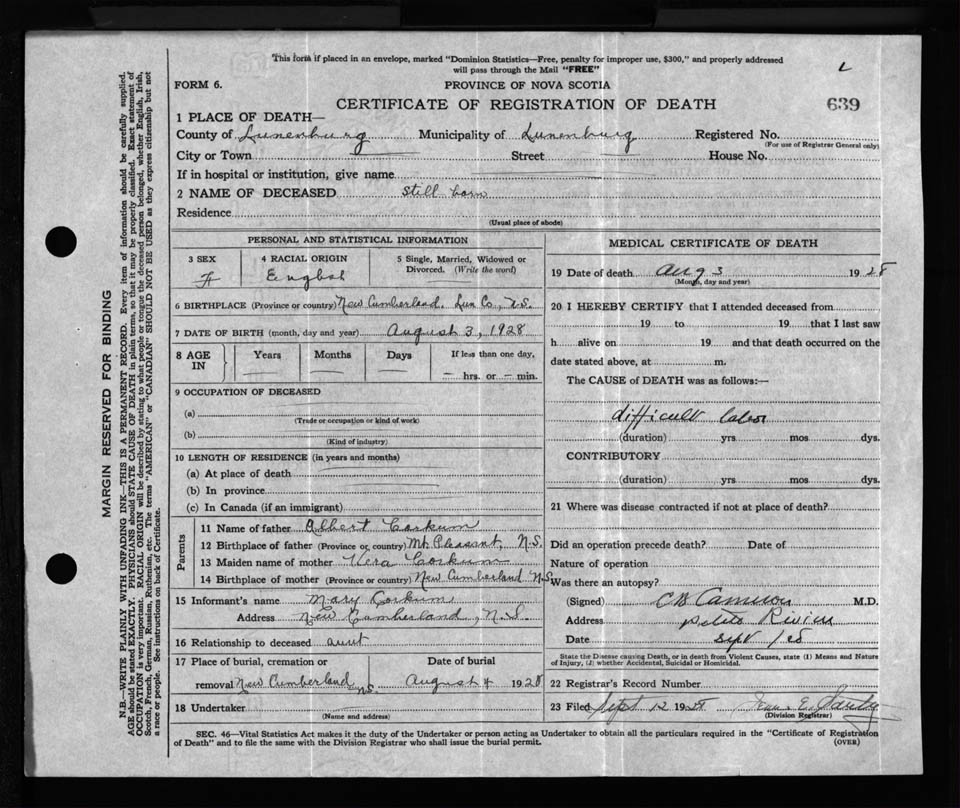 This form if placed in an envelope, marked "Dominion Statistics—Free, penalty for improper use, $300," and properly addressed
will pass through the Mail "FREE"
L
FORM 6.
PROVINCE OF NOVA SCOTIA
CERTIFICATE OF REGISTRATION OF DEATH
639
1 PLACE OF DEATH—
County of Lunenburg Municipality of Lunenburg Registered No.
(For use of Registrar General only)
City or Town Street House No.
If in hospital or institution, give name
2 NAME OF DECEASED Still born
Residence
(Usual place of abode)
MARGIN RESERVED FOR BINDING
N.B.—WRITE PLAINLY WITH UNFADING INK—THIS IS A PERMANENT RECORD. Every item of information should be carefully supplied.
AGE should be stated EXACTLY. PHYSICIANS should STATE CAUSE OF DEATH in plain terms, so that it may be properly classified. Exact statement of
OCCUPATION is very important. RACIAL ORIGIN will be described by stating to what people or tongue the deceased person belonged, whether English, Irish,
Scotch, French, German, Russian, Ruthenian, etc. The terms "AMERICAN" or "CANADIAN" SHOULD NOT BE USED as they express citizenship but not
a race or people. See instructions on back of Certificate.
PERSONAL AND STATISTICAL INFORMATION
3 SEX 4 RACIAL ORIGIN 5 Single, Married, Widowed or
Divorced. (Write the word)
F English
6 BIRTHPLACE (Province or country) New Cumberland. Lun Co., N.S.
7 DATE OF BIRTH (month, day and year) August 3, 1928
8 AGE IN Years Months Days If less than one day,
— hrs. or — min.
9 OCCUPATION OF DECEASED
(a)
(Trade or occupation or kind of work)
(b)
(Kind of industry)
10 LENGTH OF RESIDENCE (in years and months)
(a) At place of death
(b) In province
(c) In Canada (if an immigrant)
Parents
11 Name of father Albert Corkum
12 Birthplace of father (Province or country) Mt. Pleasant, N.S.
13 Maiden name of mother Vera Corkum
14 Birthplace of mother (Province or country) New Cumberland N.S.
15 Informant's name Mary Corkum
Address New Cumberland, N.S.
16 Relationship to deceased aunt
17 Place of burial, cremation or Date of burial
removal New Cumberland N.S. August 4 1928
18 Undertaker
(Name and address)
MEDICAL CERTIFICATE OF DEATH
19 Date of death Aug 3 1928
(Month, day and year)
20 I HEREBY CERTIFY that I attended deceased from
19 to 19 that I last saw
h alive on 19 and that death occurred on the
date stated above, at m.
The CAUSE of DEATH was as follows:—
difficult labor
(duration) yrs mos dys.
CONTRIBUTORY
(duration) yrs mos dys.
21 Where was disease contracted if not at place of death?
Did an operation precede death? Date of
Nature of operation
Was there an autopsy?
(Signed) Cameron M.D.
Address Petite Riviere
Date Sept 1 28
State the Disease causing Death, or in death from Violent Causes, state (1) Means and Nature
of Injury, (2) whether Accidental, Suicidal or Homicidal.
22 Registrar's Record Number
23 Filed Sept 12 1928
(Division Registrar)
SEC. 46—Vital Statistics Act makes it the duty of the Undertaker or person acting as Undertaker to obtain all the particulars required in the "Certificate of Registration
of Death" and to file the same with the Division Registrar who shall issue the burial permit. (OVER)